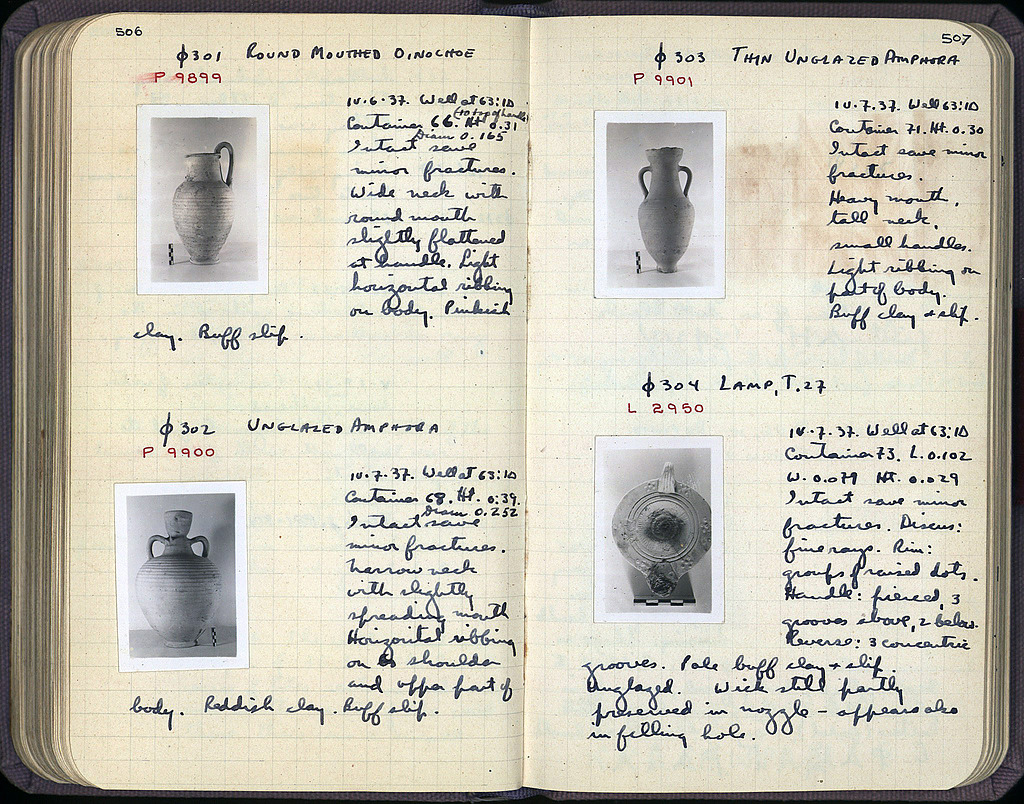 506
ϕ301 ROUND MOUTHED OINOCHOE
P 9899
IV.6.37. Well at 63:ΙΔ
(to top of handle)
Container 66. Ht. 0.31
Diam 0.165
Intact save
minor fractures.
Wide neck with
round mouth
slightly flattened
at handle. Light
horizontal ribbing
on body. Pinkish
clay. Buff slip.
ϕ302 UNGLAZED AMPHORA
P 9900
IV.7.37. Well at 63:ΙΔ
Container 68. Ht. 0.39.
Diam 0.252
Intact save
minor fractures.
Narrow neck
with slightly
spreading mouth
Horizontal ribbing
on shoulder
and upper part of
body. Reddish clay. Buff slip.
507
ϕ303 THIN UNGLAZED AMPHORA
P 9901
IV.7.37. Well 63:ΙΔ
Container 71. Ht. 0.30
Intact save minor
fractures.
Heavy mouth,
tall neck,
small handles.
Light ribbing on
part of body.
Buff clay + slip.
ϕ304 LAMP, T.27
L 2950
IV.7.37. Well at 63:ΙΔ
Container 73. L. 0.102
W. 0.079 Ht. 0.029
Intact save minor
fractures. Discus:
fine rays. Rim:
groups of raised dots.
Handle: pierced, 3
grooves above, 2 below.
Reverse: 3 concentric
grooves. Pale buff clay + slip.
Unglazed. Wick still partly
preserved in nozzle – appears also
in filling hole.